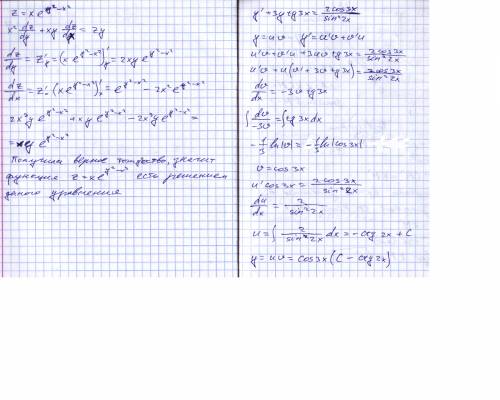 z = x e^{y²-x²}
x² dz/dy + xy dz/dx = zy
dz/dy = z'y = (x e^{y²-x²})'y = 2xy e^{y²-x²}
dz/dx = z'x (x e^{y²-x²})'x = e^{y²-x²} - 2x² e^{y²-x²}
2x³y e^{y²-x²} + xy e^{y²-x²} - 2x³y e^{y²-x²} =
= xy e^{y²-x²}
Получили верное тождество, значит
функция z = x e^{y²-x²} есть решением
даного уравнения
y' + 3y tg 3x = 2cos3x / sin²2x
y = uv y' = u'v + v'u
u'v + v'u + 3uv tg 3x = 2cos3x / sin²2x
u'v + u(v' + 3v tg 3x) = 2cos3x / sin²2x
dv/dx = -3v tg 3x
∫ dv/-3v = ∫ tg 3x dx
-1/3 ln|v| = -1/3 ln|cos3x|
v = cos3x
u' cos3x = 2cos3x / sin²2x
du/dx = 2 / sin²2x
u = ∫ 2 / sin²2x dx = -ctg 2x + C
y = uv = cos3x (C - ctg 2x)